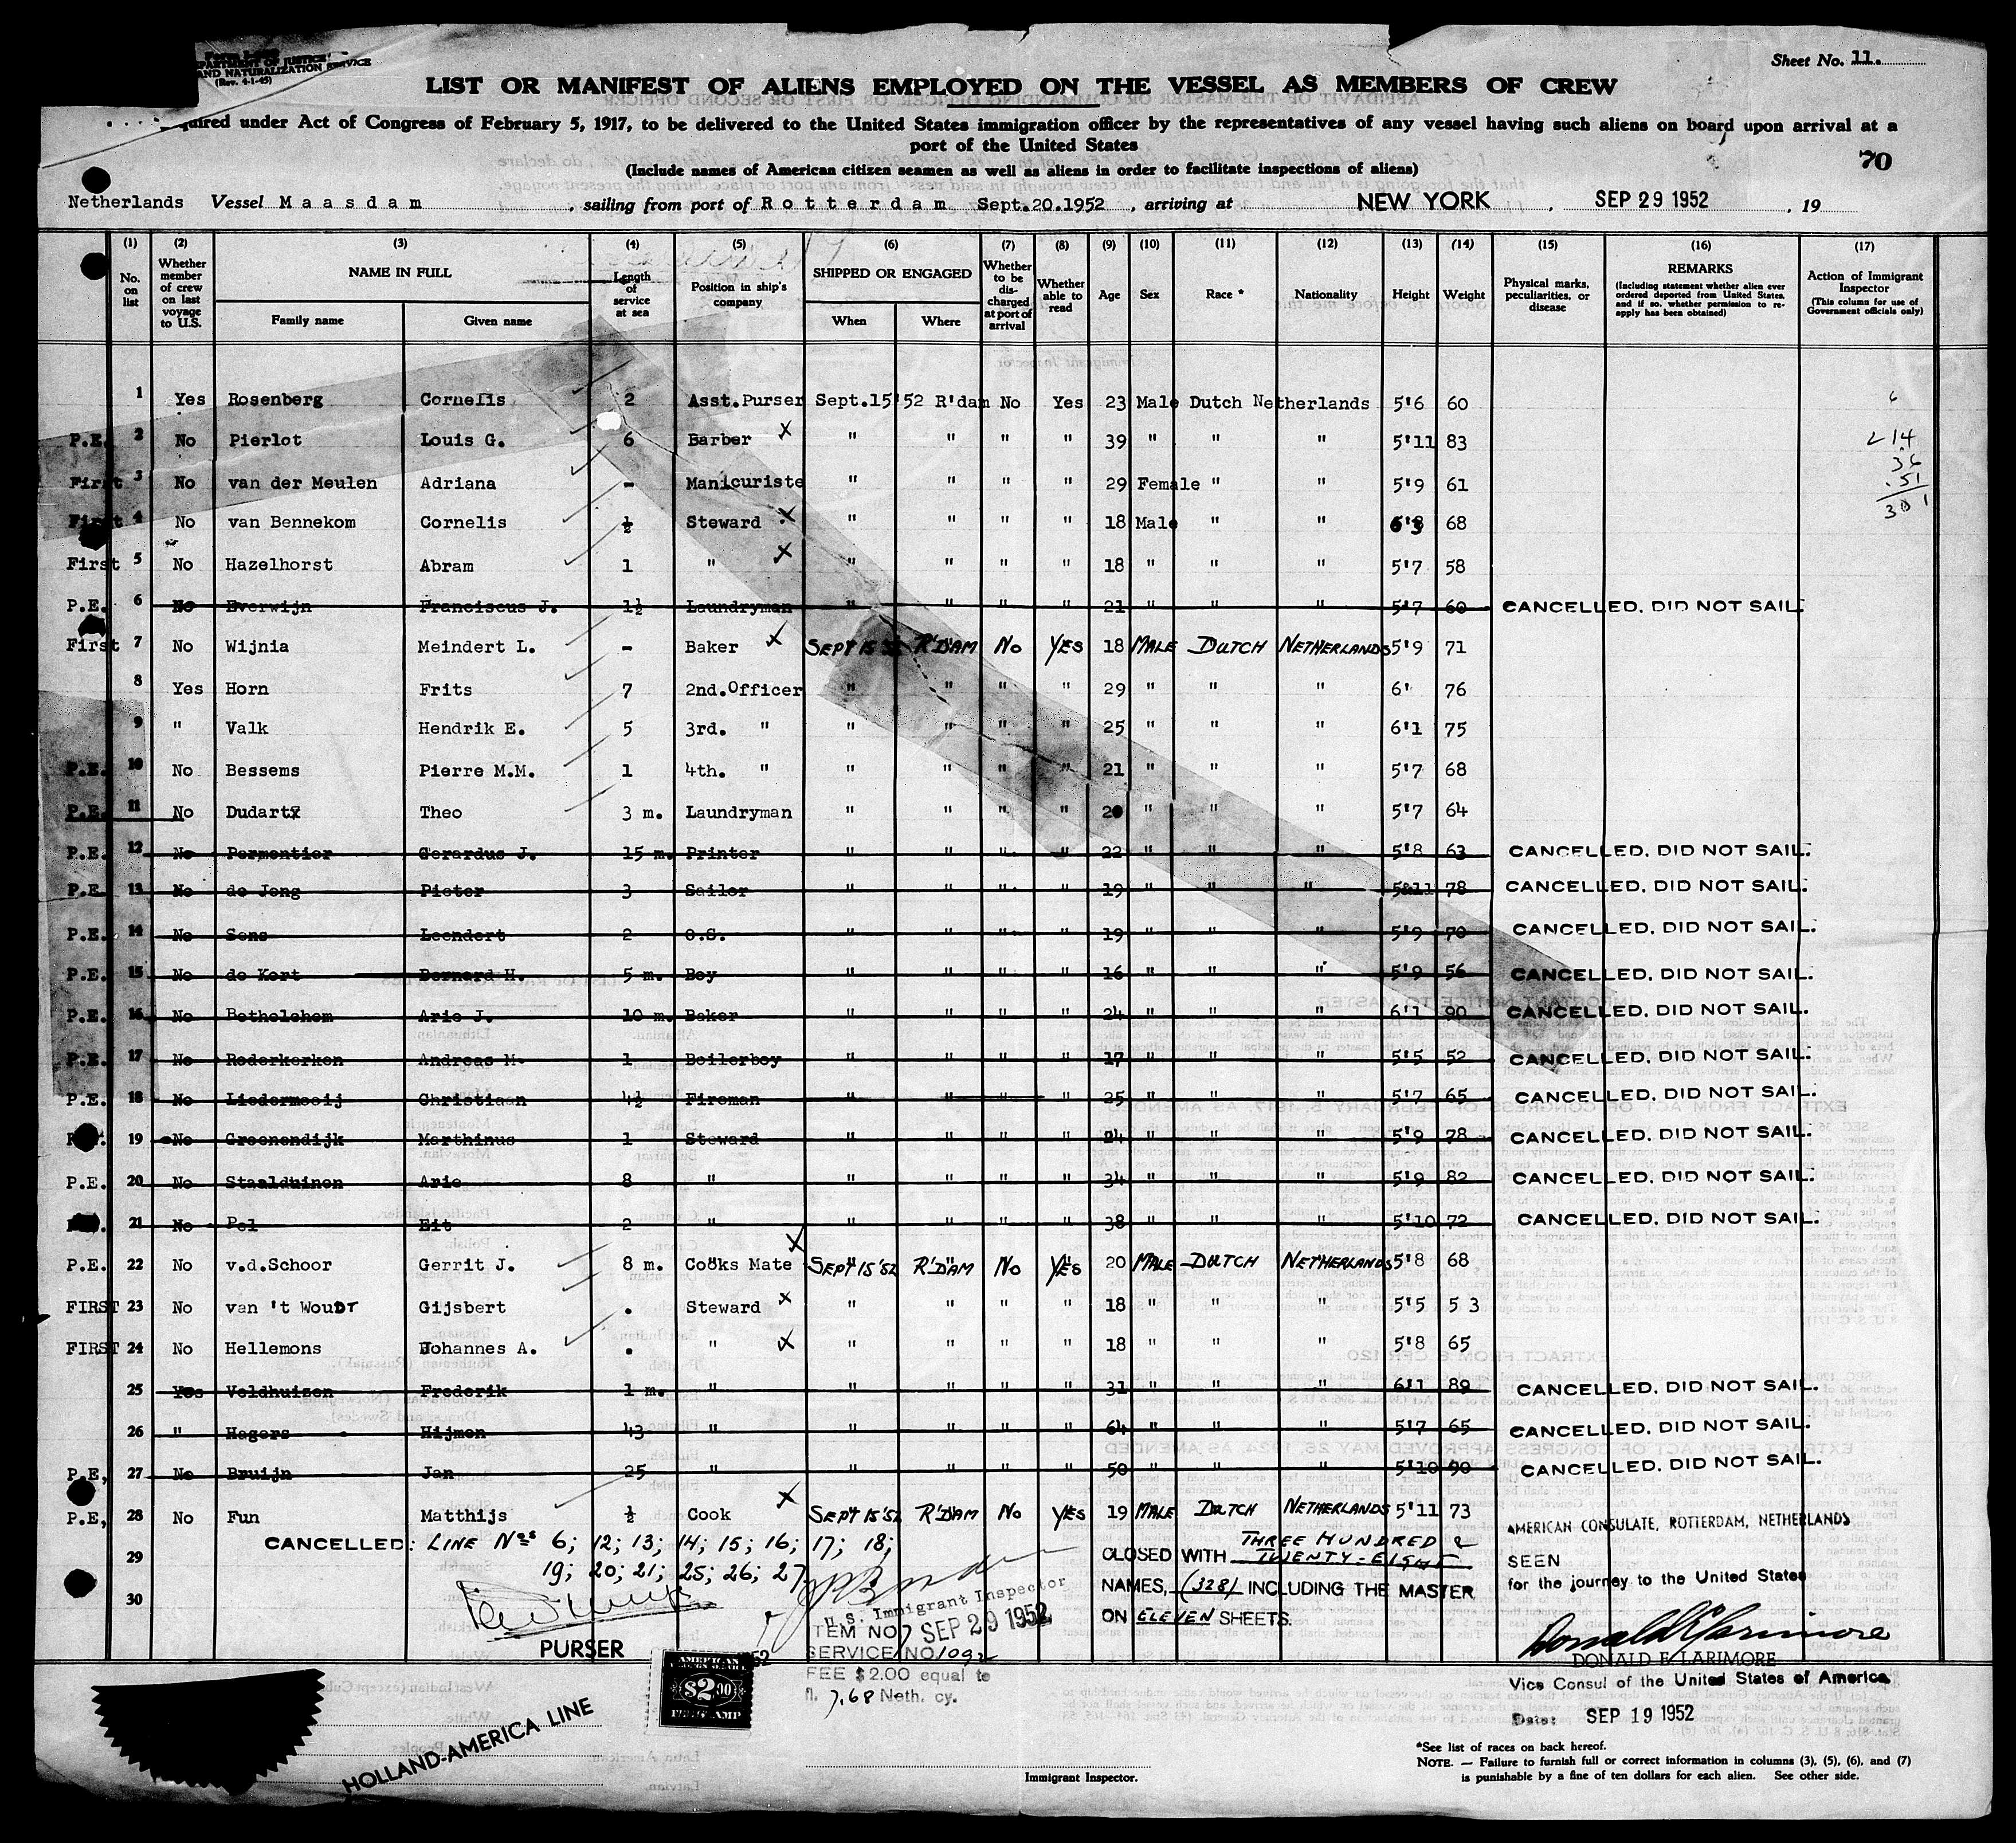 DEPARTMENT OF JUSTICE
AND NATURALIZATION SERVICE
(Rev. 4-1-45)
Sheet No. 11.
LIST OR MANIFEST OF ALIENS EMPLOYED ON THE VESSEL AS MEMBERS OF CREW
quired under Act of Congress of February 5, 1917, to be delivered to the United States immigration officer by the representatives of any vessel having such aliens on board upon arrival at a
port of the United States
70
(Include names of American citizen seamen as well as aliens in order to facilitate inspections of aliens)
Netherlands Vessel Maasdam, sailing from port of Rotterdam Sept.20.1952, arriving at NEW YORK, SEP 29 1952, 19
(1) (2) (3) (4) (5) (6) (7) (8) (9) (10) (11) (12) (13) (14) (15) (16) (17)
No. on list
Whether member of crew on last voyage to U.S.
NAME IN FULL
Family name Given name
Length of service at sea
Position in ship's company
SHIPPED OR ENGAGED
When Where
Whether to be discharged at port of arrival
Whether able to read
Age Sex Race * Nationality Height Weight
Physical marks, peculiarities, or disease
REMARKS
(Including statement whether alien ever ordered deported from United States, and if so, whether permission to re-apply has been obtained)
Action of Immigrant Inspector
(This column for use of Government officials only)
1 Yes Rosenberg Cornelis 2 Asst.Purser Sept.15'52 R'dam No Yes 23 Male Dutch Netherlands 5'6 60
P.E. 2 No Pierlot Louis G. 6 Barber X " " " " 39 " " " 5'11 83 14
36
First 3 No van der Meulen Adriana - Manicuriste " " " " 29 Female " " 5'9 61 51
First 4 No van Bennekom Cornelis ½ Steward X " " " " 18 Male " " 68 301
First 5 No Hazelhorst Abram 1 " X " " " " 18 " " " 5'7 58
P.E. 6 No Everwijn Franciscus J. 1½ Laundryman " " " " 21 " " " 5'7 60 CANCELLED. DID NOT SAIL.
First 7 No Wijnia Meindert L. - Baker X SEPT 15'52 R'DAM NO YES 18 MALE DUTCH NETHERLANDS 5'9 71
8 Yes Horn Frits 7 2nd.Officer " " " " 29 " " " 6' 76
9 " Valk Hendrik E. 5 3rd. " " " " " 25 " " " 6'1 75
P.E. 10 No Bessems Pierre M.M. 1 4th. " " " " " 21 " " " 5'7 68
P.E. 11 No Dudartx Theo 3 m. Laundryman " " " " 20 " " " 5'7 64
P.E. 12 No Permentier Gerardus J. 15 m. Printer " " " " 22 " " " 5'8 63 CANCELLED. DID NOT SAIL.
P.E. 13 No de Jong Pieter 3 Sailor " " " " 19 " " " 5'11 78 CANCELLED. DID NOT SAIL.
P.E. 14 No Sens Leendert 2 O.S. " " " " 19 " " " 5'9 70 CANCELLED. DID NOT SAIL.
P.E. 15 No de Kort Bernard H. 5 m. Boy " " " " 16 " " " 5'9 56 CANCELLED. DID NOT SAIL.
P.E. 16 No Bethelehem Arie J. 10 m. Baker " " " " 24 " " " 6'1 90 CANCELLED. DID NOT SAIL.
P.E. 17 No Rederkerken Andreas M. 1 Boilerboy " " " " 17 " " " 5'5 52 CANCELLED. DID NOT SAIL.
P.E. 18 No Liedermooij Christiaan 4½ Fireman " " " " 25 " " " 5'7 65 CANCELLED. DID NOT SAIL.
19 No Groenendijk Marthinus 1 Steward " " " " 24 " " " 5'9 78 CANCELLED. DID NOT SAIL.
P.E. 20 No Staalduinen Arie 8 " " " " " 34 " " " 5'9 82 CANCELLED. DID NOT SAIL.
21 No Pol Eit 2 " " " " " 38 " " " 5'10 72 CANCELLED. DID NOT SAIL.
P.E. 22 No v.d.Schoor Gerrit J. 8 m. Cooks Mate X SEPT 15'52 R'DAM NO YES 20 MALE DUTCH NETHERLANDS 5'8 68
FIRST 23 No van 't Woudt Gijsbert . Steward X " " " " 18 " " " 5'5 53
FIRST 24 No Hellemons Johannes A. . " X " " " " 18 " " " 5'8 65
25 Yes Veldhuizen Frederik 1 m. " " " " " 31 " " " 6'1 89 CANCELLED. DID NOT SAIL.
26 " Hagers Hijmen 43 " " " " " 64 " " " 5'7 65 CANCELLED. DID NOT SAIL.
P.E, 27 No Bruijn Jan 25 " " " " " 50 " " " 5'10 90 CANCELLED. DID NOT SAIL.
P.E, 28 No Fun Matthijs ½ Cook X SEPT 15'52 R'DAM NO YES 19 MALE DUTCH NETHERLANDS 5'11 73
CANCELLED: LINE Nos 6; 12; 13; 14; 15; 16; 17; 18;
29 19; 20; 21; 25; 26; 27
30
PURSER
U.S. Immigrant Inspector
SEP 29 1952
TEM NO 7
SERVICE NO 1092
FEE $2.00 equal to
fl. 7.68 Neth. cy.
$2.00
FEE STAMP
CLOSED WITH THREE HUNDRED & TWENTY-EIGHT
NAMES, (328) INCLUDING THE MASTER
ON ELEVEN SHEETS.
AMERICAN CONSULATE, ROTTERDAM, NETHERLANDS
SEEN
for the journey to the United States
Donald E Larimore
DONALD E. LARIMORE
Vice Consul of the United States of America
Date: SEP 19 1952
HOLLAND-AMERICA LINE
Immigrant Inspector.
*See list of races on back hereof.
NOTE. — Failure to furnish full or correct information in columns (3), (5), (6), and (7)
is punishable by a fine of ten dollars for each alien. See other side.